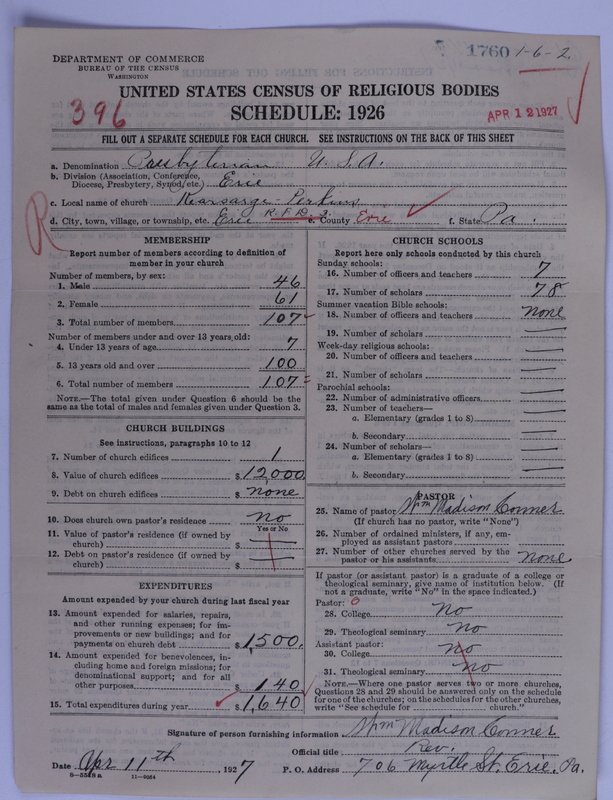 DEPARTMENT OF COMMERCE
BUREAU OF THE CENSUS
WASHINGTON
1760 1-6-2
UNITED STATES CENSUS OF RELIGIOUS BODIES
396
SCHEDULE: 1926
APR 12 1927
FILL OUT A SEPARATE SCHEDULE FOR EACH CHURCH. SEE INSTRUCTIONS ON THE BACK OF THIS SHEET
a. Denomination Presbyterian U.S.A.
b. Division (Association, Conference, Diocese, Presbytery, Synod, etc.) Erie
c. Local name of church Kearsarge-Perkins
d. City, town, village, or township, etc. Erie R.F.D. 2 e. County Erie f. State Pa.
R
MEMBERSHIP
Report number of members according to definition of
member in your church
Number of members, by sex:
1. Male 46
2. Female 61
3. Total number of members 107
Number of members under and over 13 years old:
4. Under 13 years of age 7
5. 13 years old and over 100
6. Total number of members 107
NOTE.—The total given under Question 6 should be
same as the total of males and females given under Question 3.
CHURCH BUILDINGS
See instructions, paragraphs 10 to 12
7. Number of church edifices 1
8. Value of church edifices $ 12,000
9. Debt on church edifices $ none
10. Does church own pastor's residence no
Yes or No
11. Value of pastor's residence (if owned by
church) $
12. Debt on pastor's residence (if owned by
church) $
EXPENDITURES
Amount expended by your church during last fiscal year
13. Amount expended for salaries, repairs,
and other running expenses; for im-
provements or new buildings; and for
payments on church debt $ 1,500.
14. Amount expended for benevolences, in-
cluding home and foreign missions; for
denominational support; and for all
other purposes $ 140
15. Total expenditures during year $ 1,640
CHURCH SCHOOLS
Report here only schools conducted by this church
Sunday schools:
16. Number of officers and teachers 7
17. Number of scholars 78
Summer vacation Bible schools:
18. Number of officers and teachers none
19. Number of scholars
Week-day religious schools:
20. Number of officers and teachers
21. Number of scholars
Parochial schools:
22. Number of administrative officers
23. Number of teachers—
a. Elementary (grades 1 to 8)
b. Secondary
24. Number of scholars—
a. Elementary (grades 1 to 8)
b. Secondary
PASTOR
25. Name of pastor Wm Madison Conner
(If church has no pastor, write "None")
26. Number of ordained ministers, if any, em-
ployed as assistant pastors
27. Number of other churches served by the
pastor or his assistants none
If pastor (or assistant pastor) is a graduate of a college or
theological seminary, give name of institution below. (If
not a graduate, write "No" in the space indicated.)
Pastor: 0
28. College No
29. Theological seminary No
Assistant pastor:
30. College No
31. Theological seminary No
NOTE.—Where one pastor serves two or more churches,
Questions 28 and 29 should be answered only on the schedule
for one of the churches; on the schedules for the other churches,
write "See schedule for church."
Signature of person furnishing information Wm Madison Conner
Official title Rev.
Date Apr 11th, 1927 P. O. Address 706 Myrtle St. Erie, Pa.
11—9264